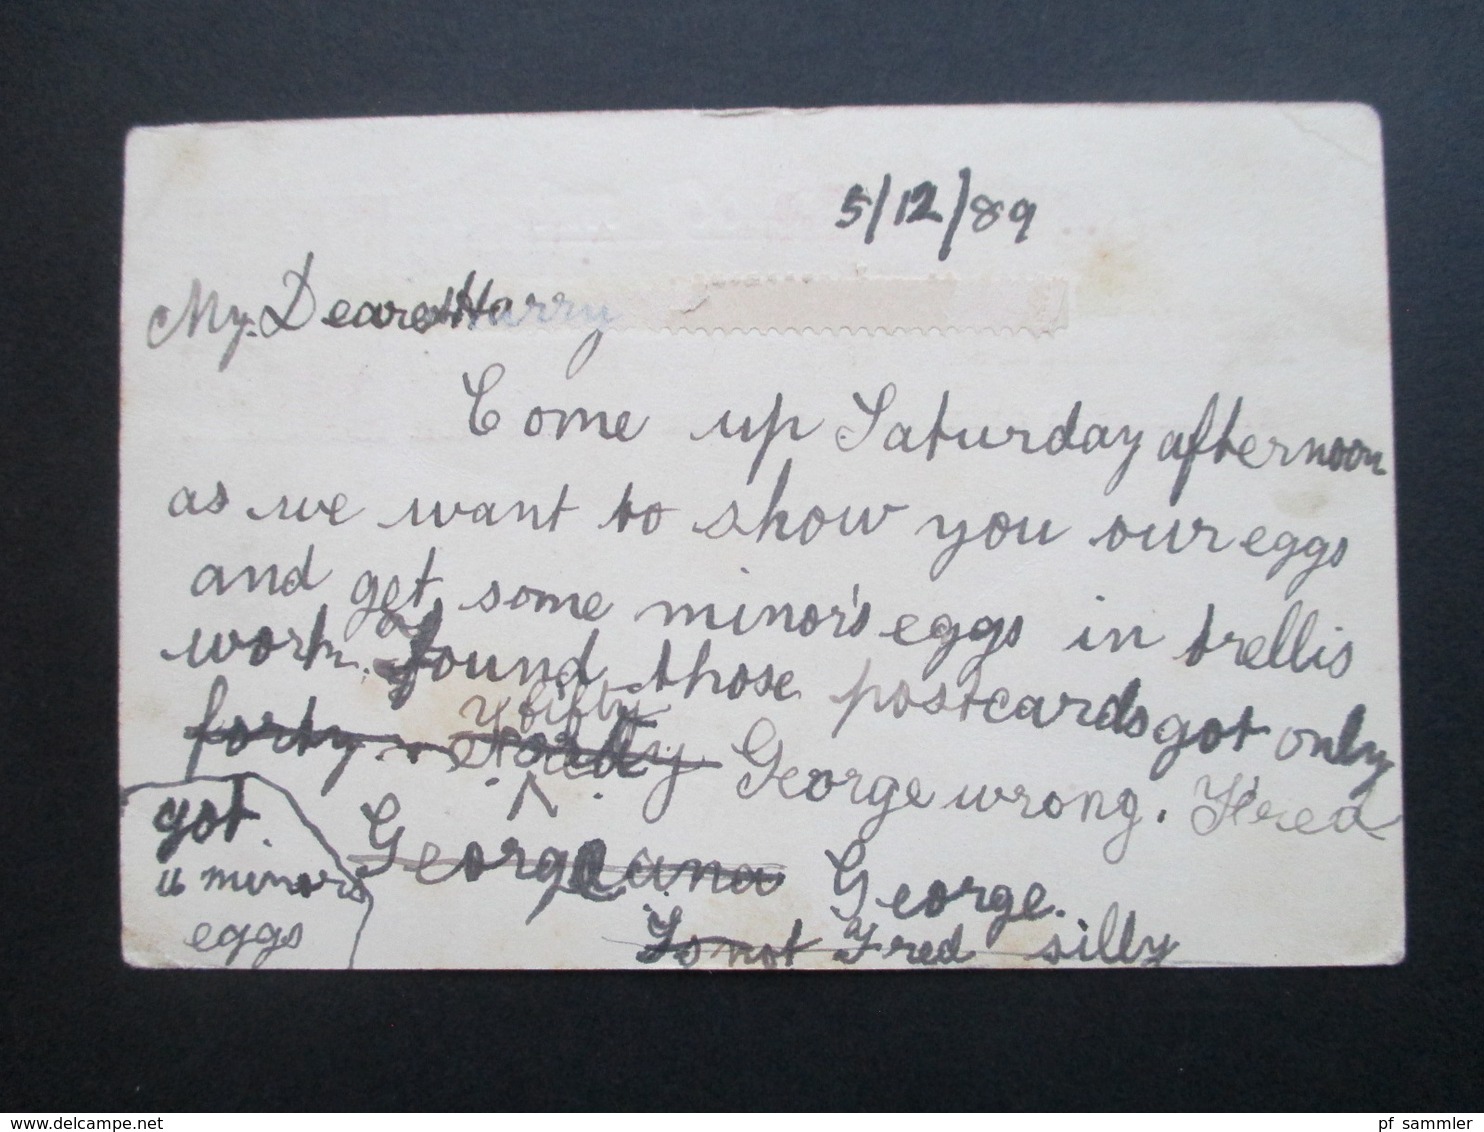 5/12/89
My Dearest Harry
Come up Saturday afternoon
as we want to show you our eggs
and get some minor's eggs in trellis
work. found those postcards got only
fifty
forty George wrong. Fred
Georgeiana George.
Is not Fred silly
got
11 minors
eggs
pf_sammler